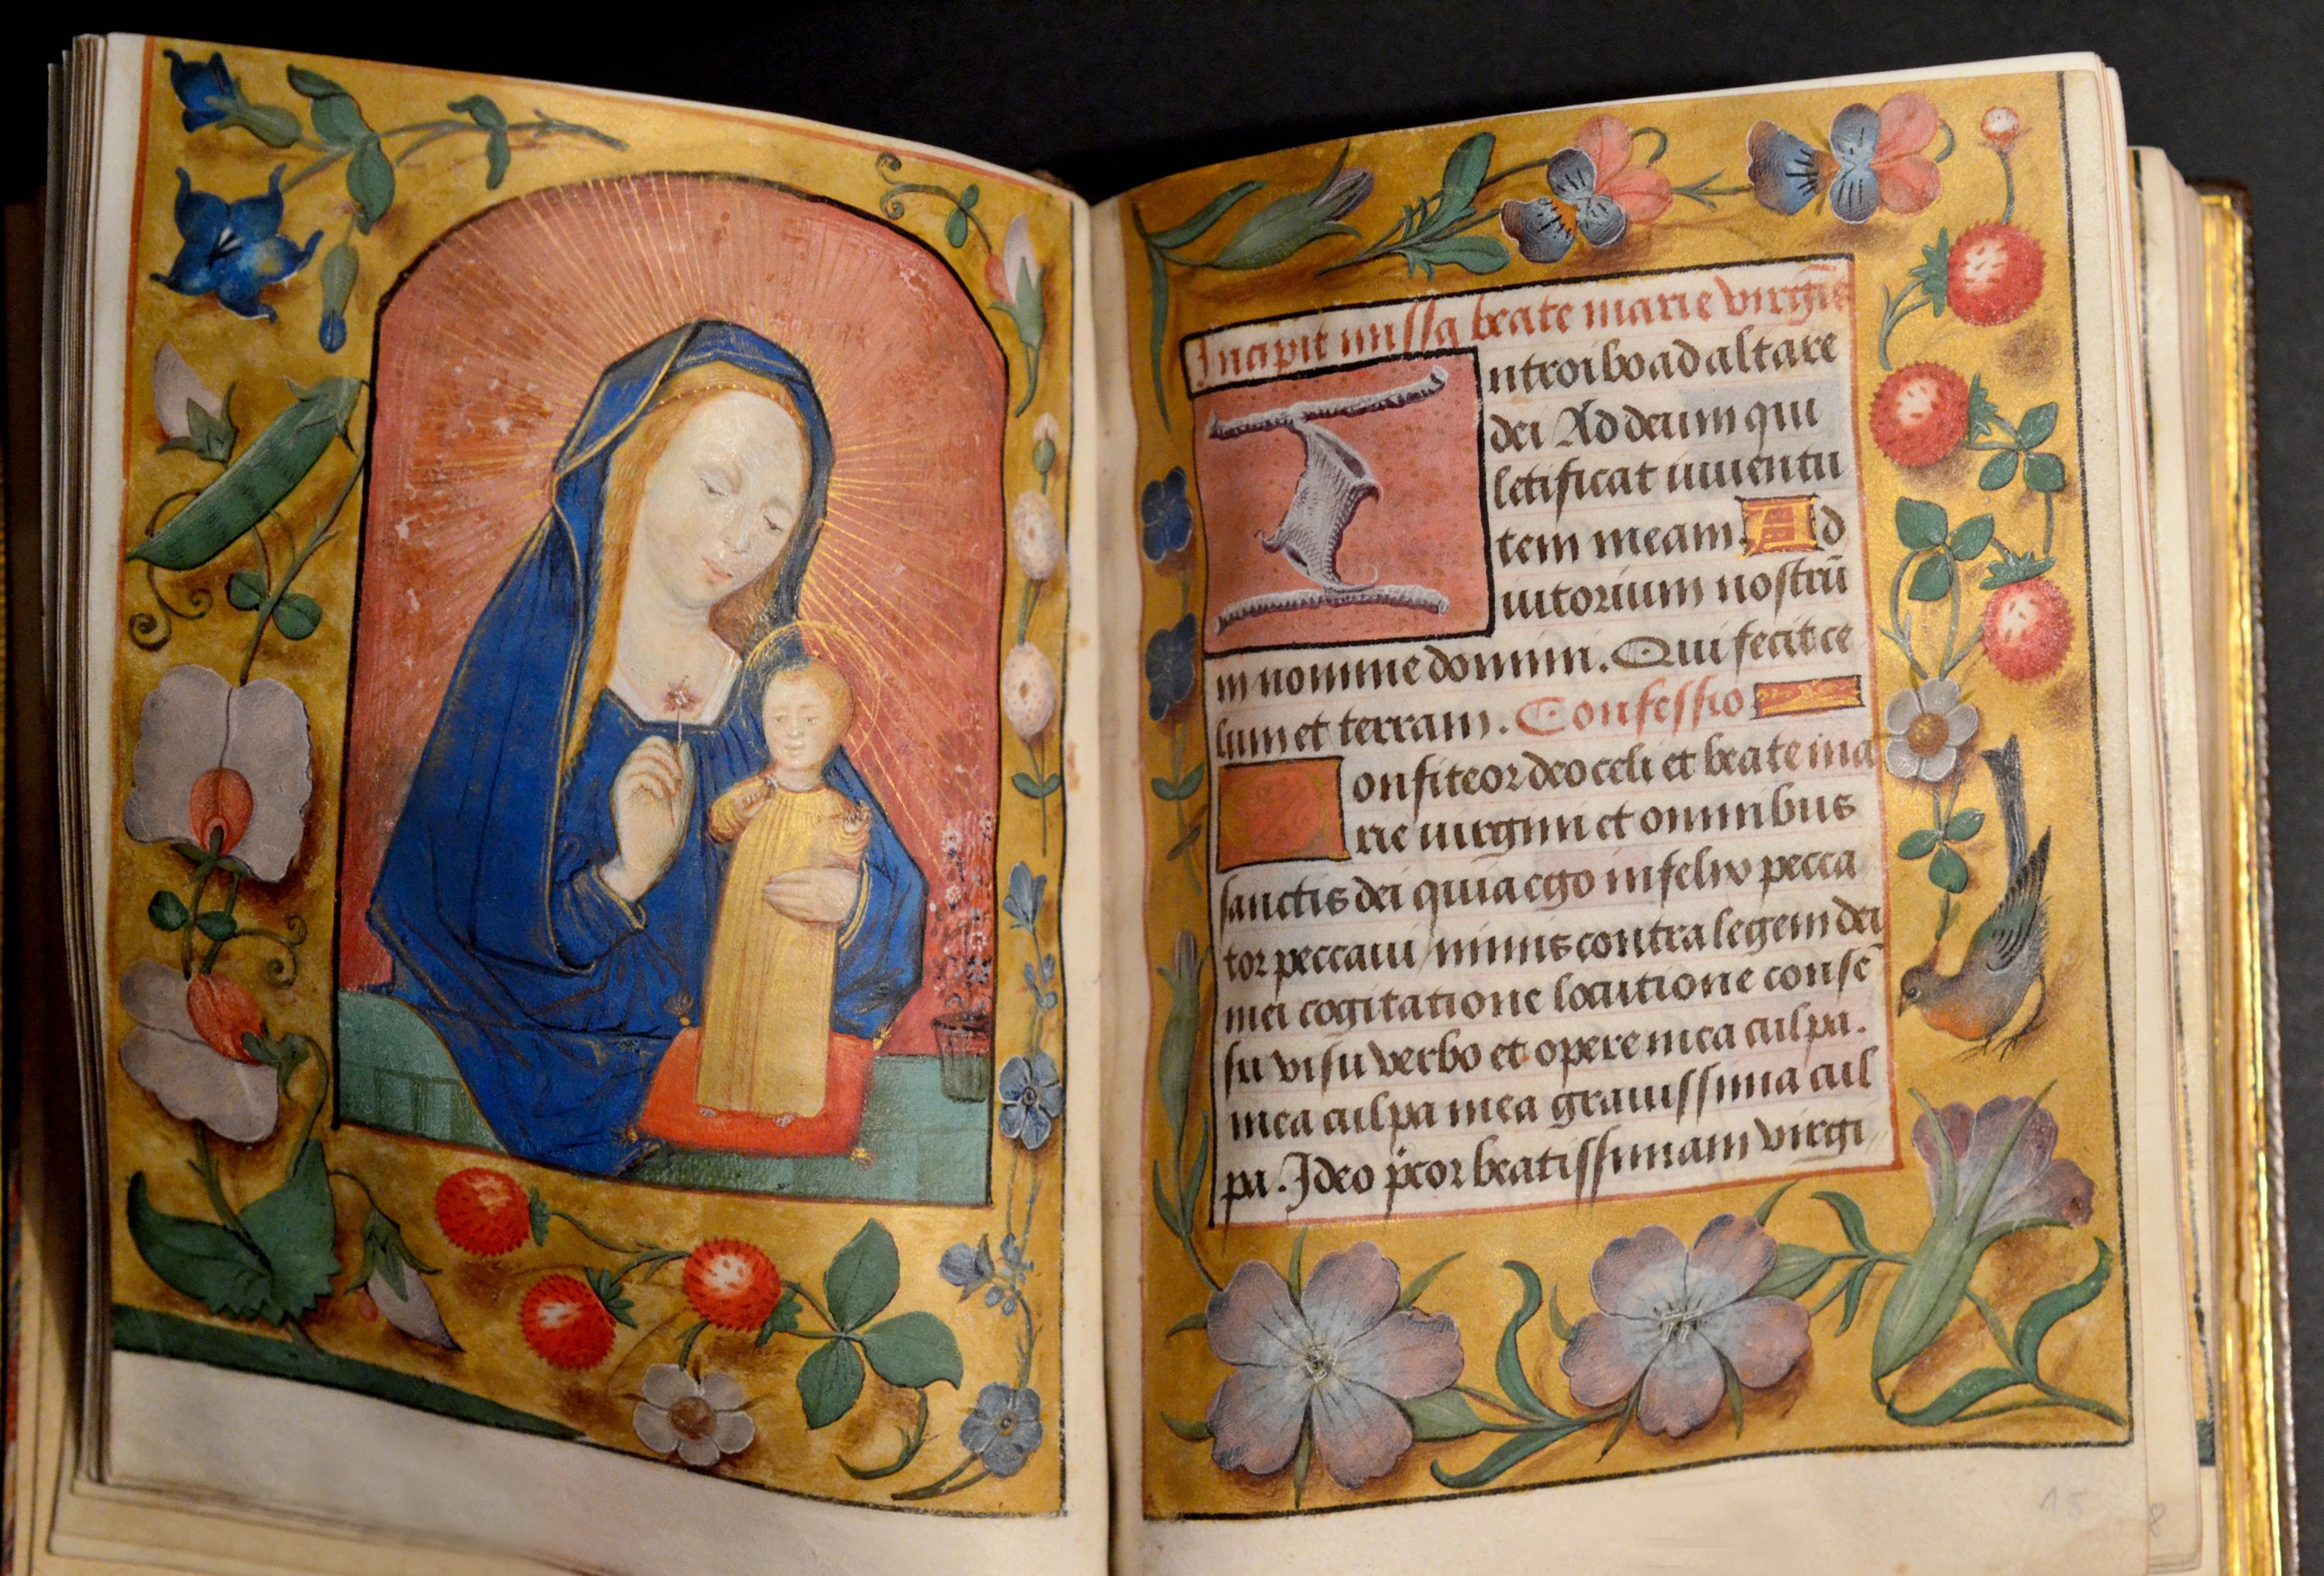 Incipit missa beate marie virgīs
Introibo ad altare
dei Ad deum qui
letificat iuuentu
tem meam. Ad
iutorium nostrū
in nomine domini. Qui fecit ce
lum et terram. Confessio
Confiteor deo celi et beate ma
rie uirgini et omnibus
sanctis dei quia ego infelix pecca
tor peccaui nimis contra legem dei
mei cogitatione locutione consē
su visu verbo et opere mea culpa.
mea culpa mea grauissima cul
pa. Ideo p̄cor beatissimam virgi
15
8